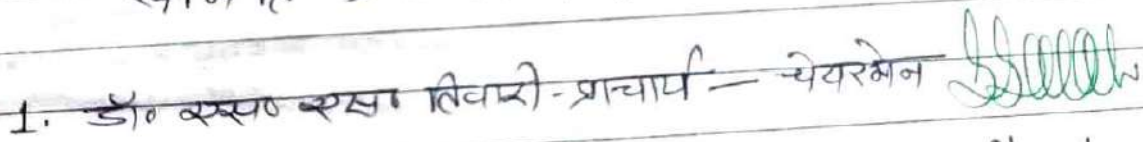 1. डॉ० एस० एस० तिवारी - प्राचार्य — चेयरमेन